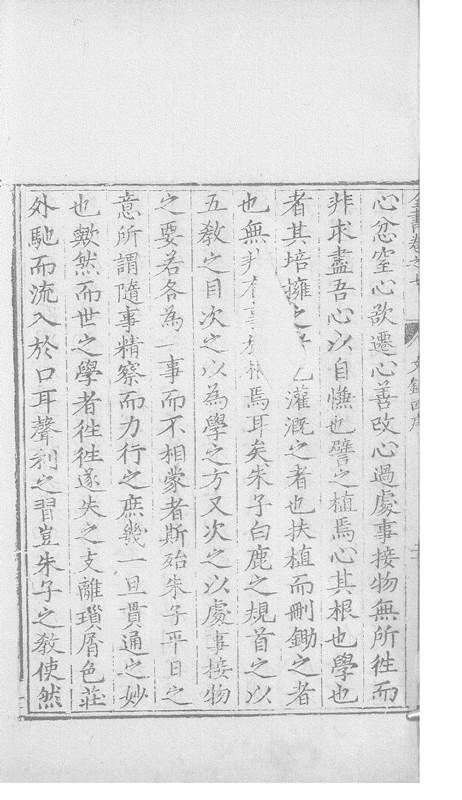 心忿窒心欲遷心善改心過處事接物無所徃而
非求盡吾心以自慊也譬之植焉心其根也學也
者其培擁之 灌溉之者也扶植而刪鋤之者
也無非有事 焉耳矣朱子白鹿之規首之以
五敎之目次之以為學之方又次之以處事接物
之要若各為一事而不相蒙者斯殆朱子平日之
意所謂隨事精察而力行之庶幾一旦貫通之妙
也歟然而世之學者徃徃遂失之支離瑣屑色莊
外馳而流入於口耳聲利之習豈朱子之教使然